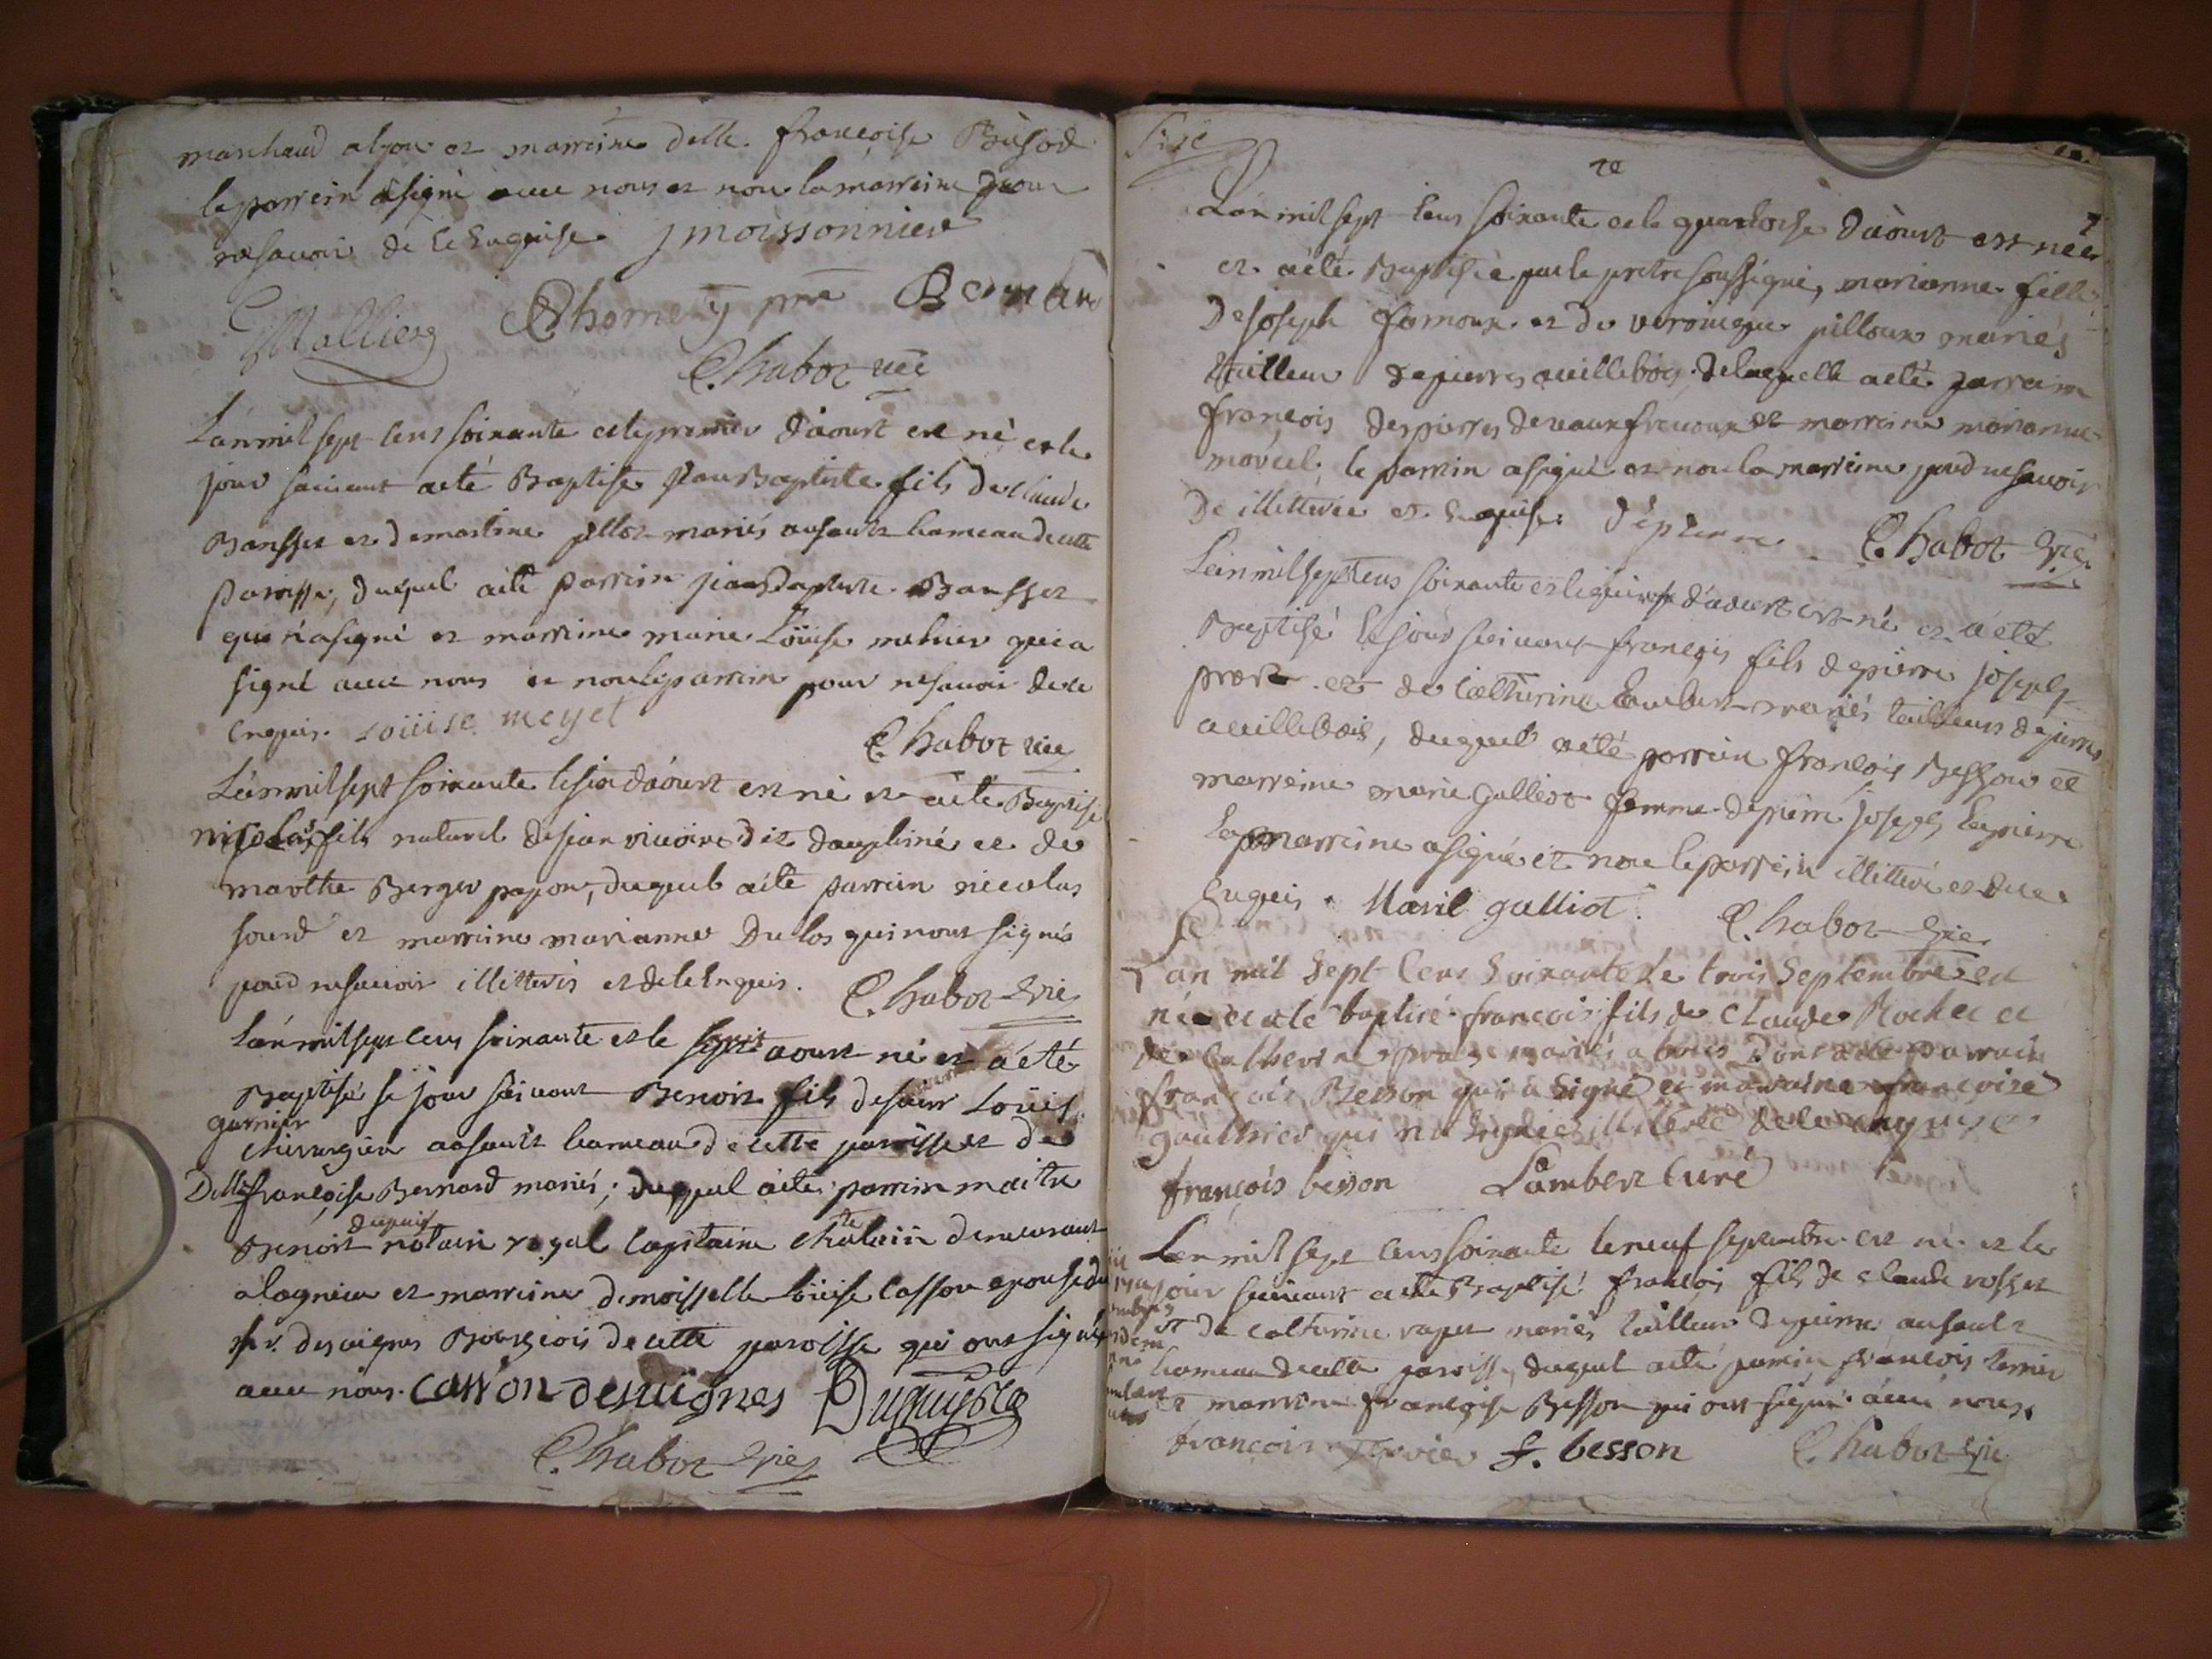 marchand alyon et marreine delle. françoise Busod
le parrein asigné avec nous et non la marreine pour
ne savoir de ce Enquise jmoissonnier
Mallier Thomey Bernard
Chabot vic
Lan mil sept cens soixante et le premier d'aoust est né et le
jour suivant a eté Baptisé Jean Baptiste fils de claude
Bansset et demartine pillot mariés ausault hameau de cette
paroisse, duquel a eté parrein jean Baptiste Bansset
qui n'a signé et marreine marie Loüise mehier qui a
signé avec nous et non le parrein pour ne savoir de ce
enquis. Loüise meyet
Chabot vic
Lan mil sept soixante le six d'aoust est né et a eté Baptisé
nicolas fils naturel de jean vicoire dit dauphiné et de
marthe Berger payon, duquel a eté parrein nicolas
sourd et marreine marianne Dulos qui nont signés
pour ne savoir illitterés et de ce Enquis. Chabot vic
Lan mil sept cens soixante et le sept aoust né et a eté
Baptisé le jour suivant Benoit fils de sieur Loüis
garnier
chirurgien ausault hameau de cette paroisse et de
Delle françoise Bernard mariés; duquel a eté parrein maitre
dupuis
Benoit notaire royal capitaine chatelain demeurant
a lagnieu et marreine demoisselle Loüise Casson epouse du
sr. desvignes Bourgeois de cette paroisse qui ont signés
avec nous. casson desvignes Dupuis
Chabot vic
Lan mil sept cens soixante et le quatorse d'aoust est neé
et a eté Baptisée par le pretre soussigné, marianne fille
de joseph famoux et de veronique pilloux mariés
tailleur de pierres a villebois, de laquelle a eté parrein
françois despierres de vaux et marreine marianne
marcel, le parrein a signé et non la marreine pour ne savoir
de illitterée et Enquise. dépierre Chabot vic
Lan mil sept cens soixante et le quinse d'aoust est né et a eté
Baptisé le jour suivant françois fils de pierre joseph
prost et de catherine Lambert mariés tailleurs de pierres
a villebois, duquel a eté parrein françois Besson et
marreine marie galliot femme de pierre joseph
la marreine a signé et non le parrein illitteré et de ce
Enquis. Marie galliot. Chabot vic
Lan mil Sept Cens Soixante Le trois Septembre est
né et a eté baptisé françois fils de Claude Rochet et
de Catherine mariés a dont a eté parrain
françois Besson qui a Signé et maraine françoise
gauthier qui n'a Signé illiterée de ce enquise
françois besson Lambert Curé
Lan mil sept cens soixante le neuf septembre est né et le
jour suivant a eté Baptisé françois fils de claude rosset
et de catherine vaget mariés tailleur de pierre ausault
hameau de cette paroisse, duquel a eté parrein françois terrier
et marreine françoise Besson qui ont signé avec nous.
françois terrier f. besson Chabot vic